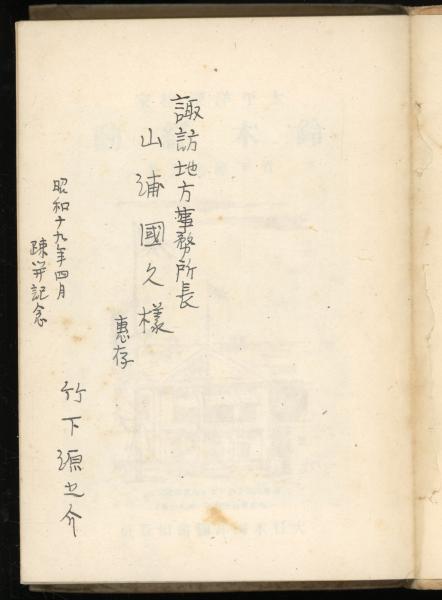 諏訪地方事務所長
山浦國久様
惠存
昭和十九年四月
疎開記念
竹下源之介